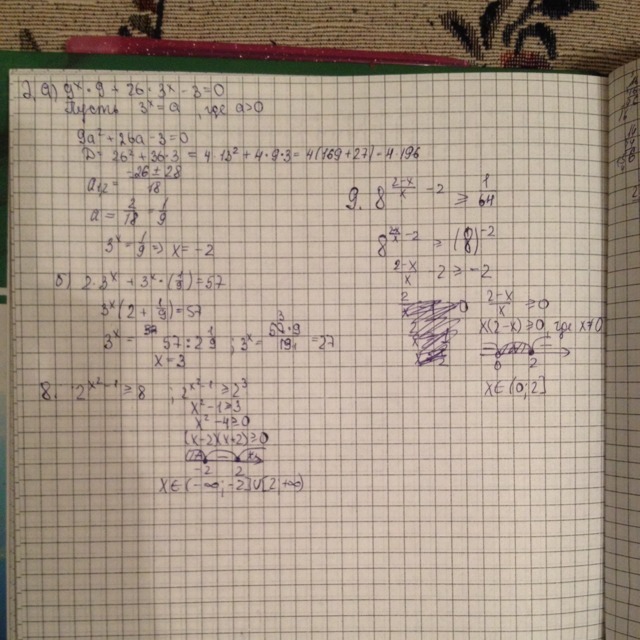 2. а) 9^x · 9 + 26 · 3^x - 3 = 0
Пусть 3^x = a, где a>0
9a² + 26a - 3 = 0
D = 26² + 36·3 = 4·13² + 4·9·3 = 4(169+27) = 4·196
a₁,₂ = (-26 ± 28)/18
a = 2/18 = 1/9
3^x = 1/9 => x = -2
б) 2·3^x + 3^x · (1/9) = 57
3^x (2 + 1/9) = 57
3^x = 57 : 2 1/9 ; 3^x = 57·9/19 = 27
x = 3
8. 2^(x²-1) ≥ 8 ; 2^(x²-1) ≥ 2³
x² - 1 ≥ 3
x² - 4 ≥ 0
(x-2)(x+2) ≥ 0
-2 2
x ∈ (-∞; -2] ∪ [2; +∞)
9. 8^((2-x)/x - 2) ≥ 1/64
8^((2-x)/x - 2) ≥ (8)^-2
(2-x)/x - 2 ≥ -2
(2-x)/x ≥ 0
x(2-x) ≥ 0, где x≠0
0 2
x ∈ (0; 2]